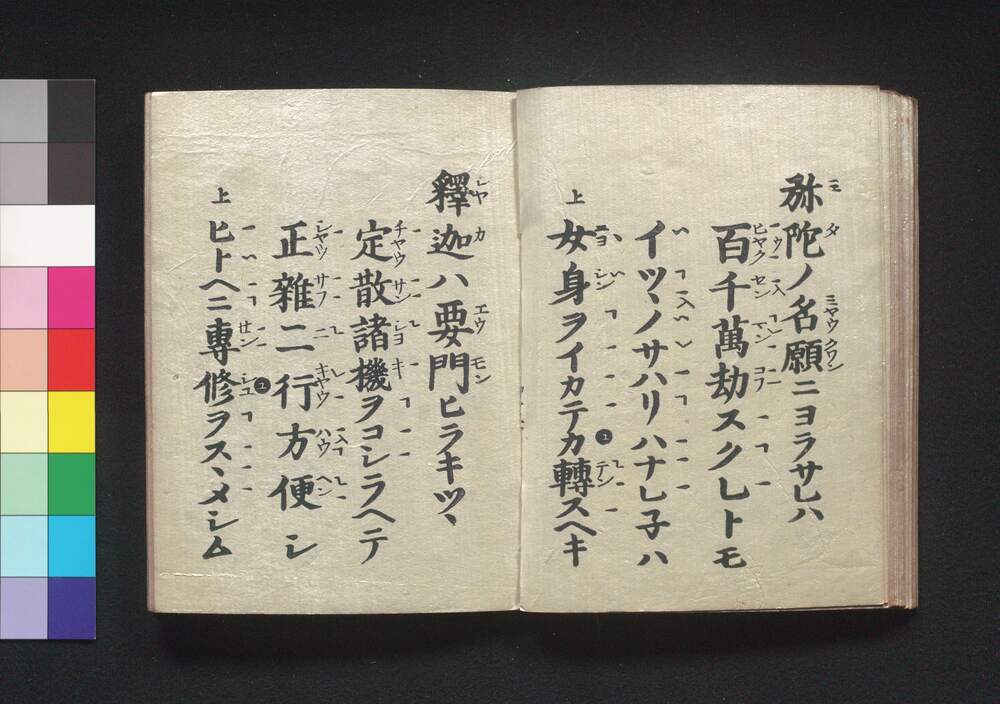 弥陀ノ名願ニヨラサレハ
百千萬劫スクレトモ
イツヽノサハリハナレ子ハ
上 女身ヲイカテカ轉スヘキ
釋迦ハ要門ヒラキツヽ
定散諸機ヲコシラヘテ
正雜二行方便シ
上 ヒトヘニ專修ヲスヽメシム